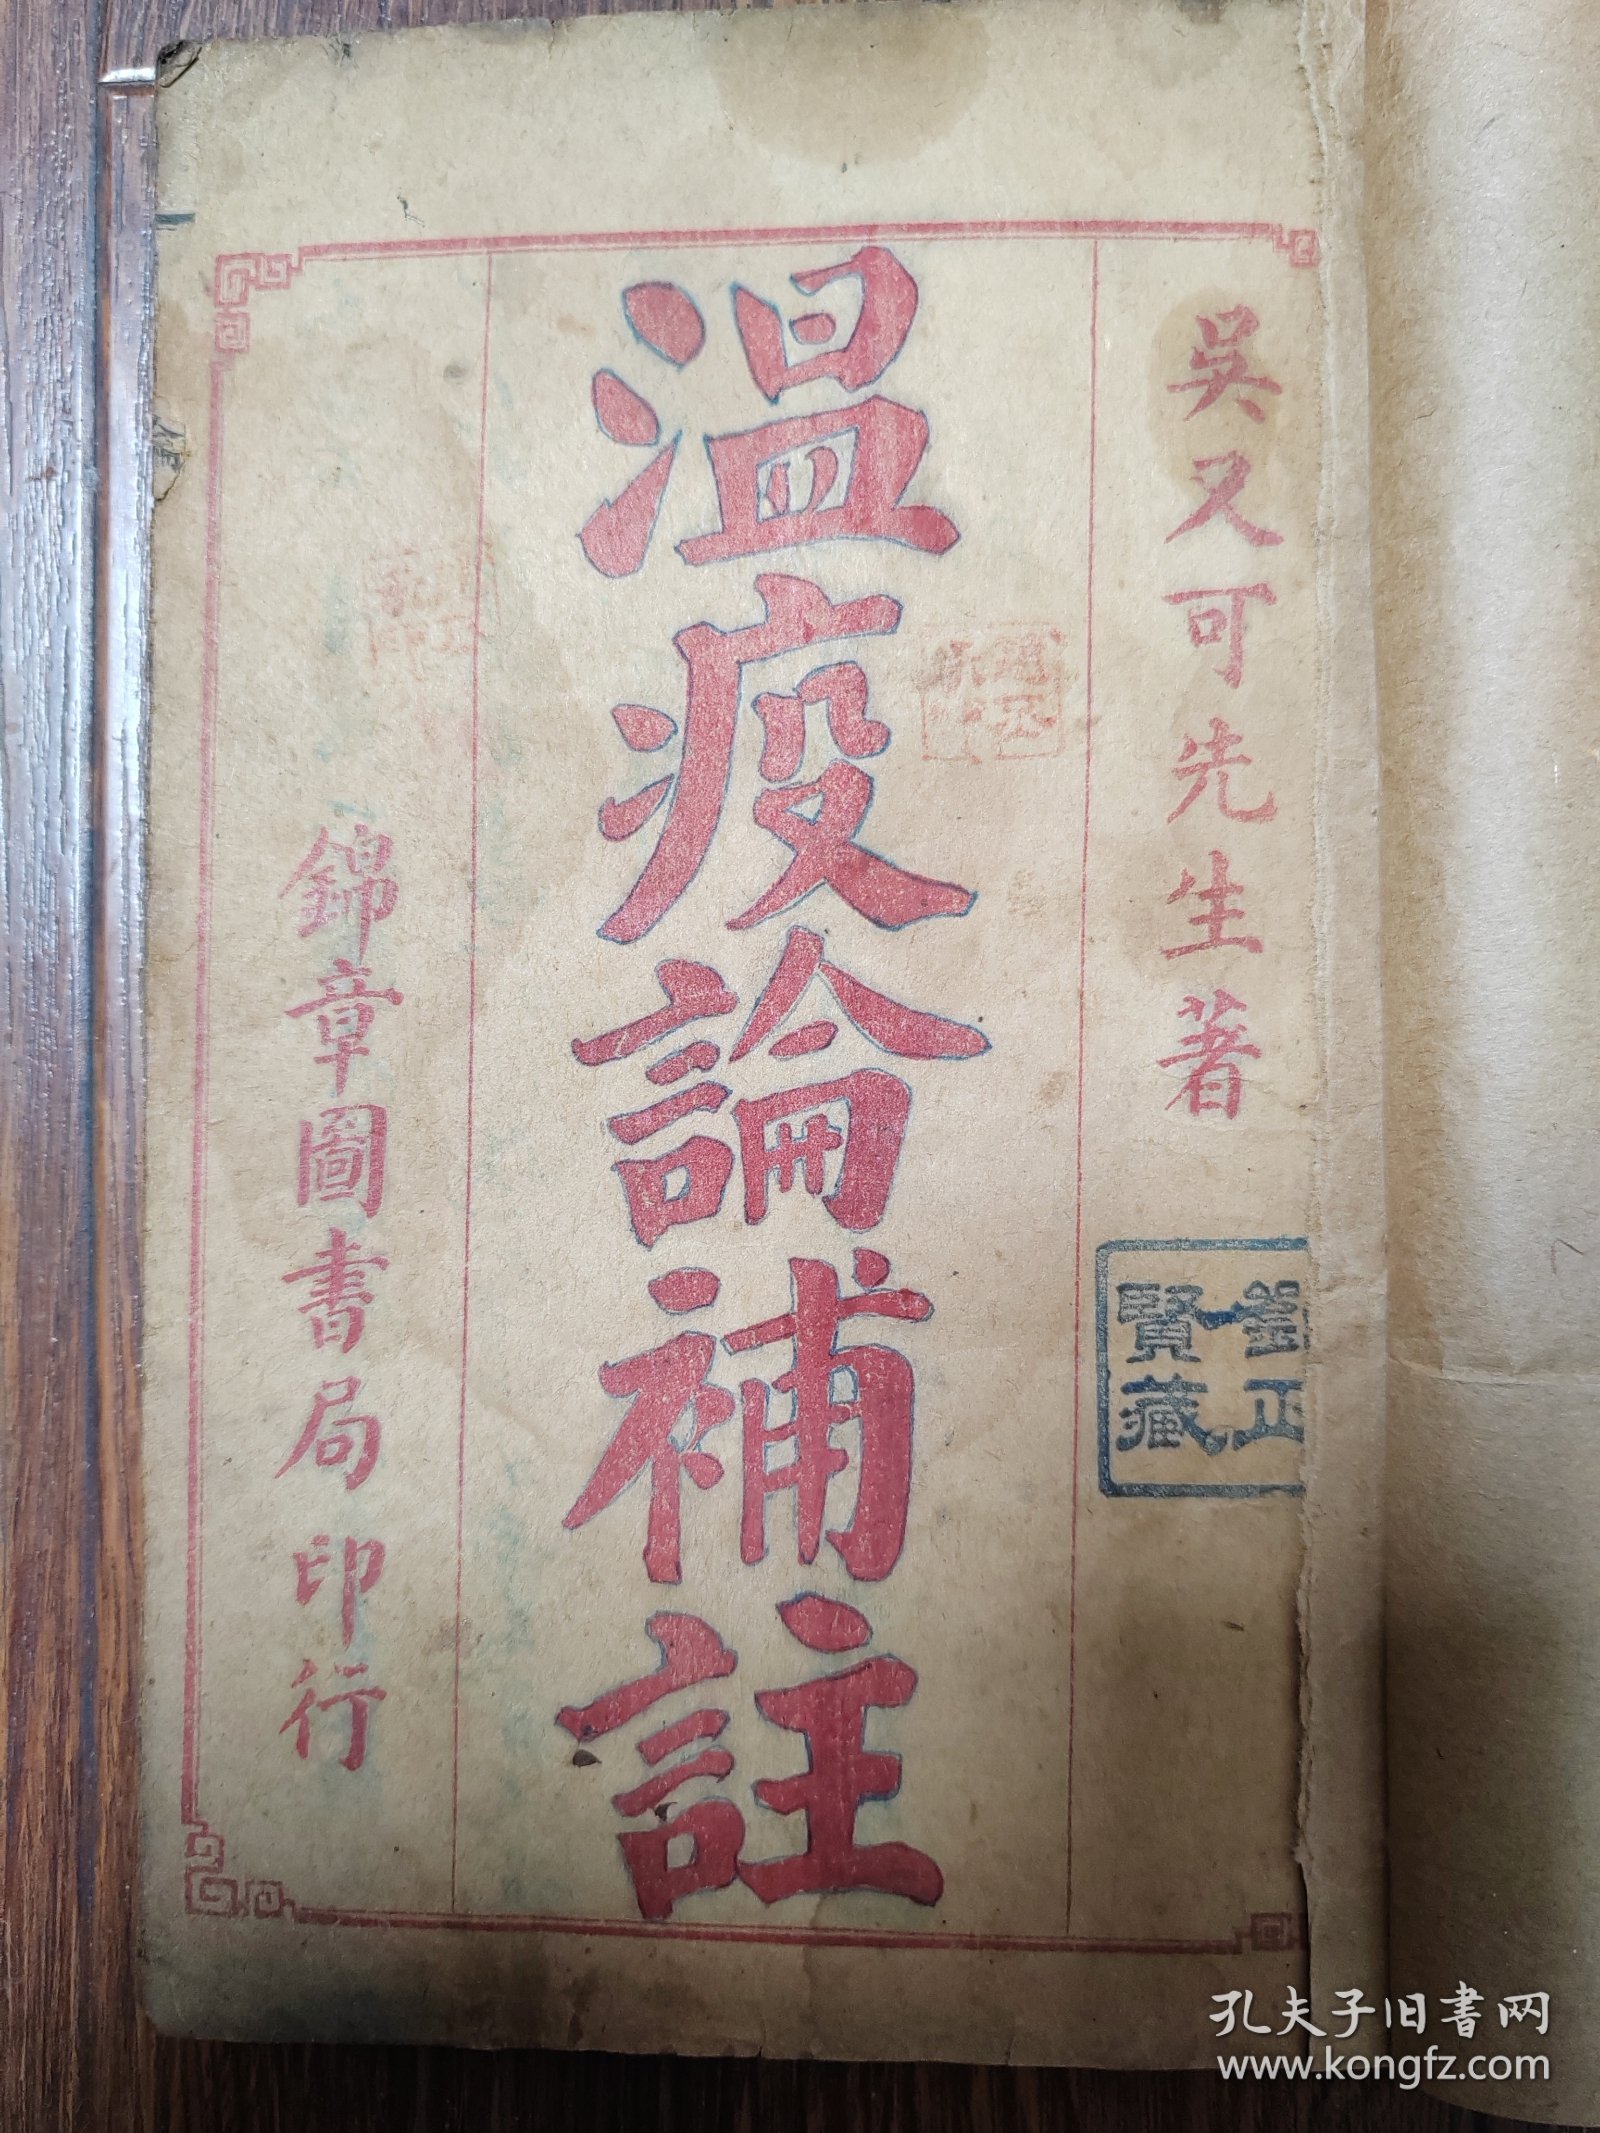 吳又可先生著
溫疫論補註
錦章圖書局印行
劉正
賢藏
孔夫子旧书网
www.kongfz.com